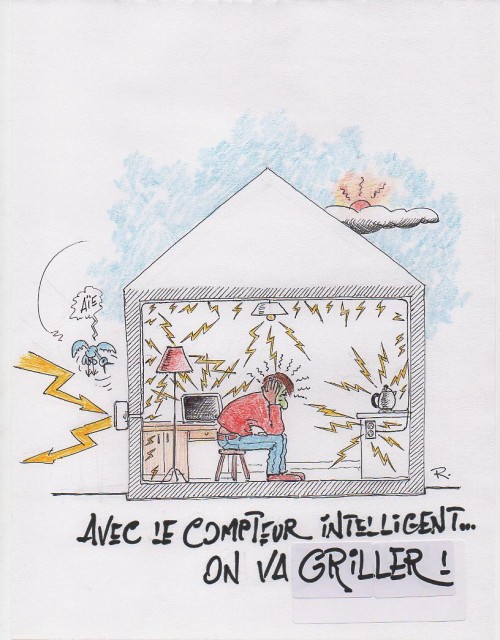 AÏE
R.
AVEC LE COMPTEUR INTELLIGENT...
ON VA GRILLER !